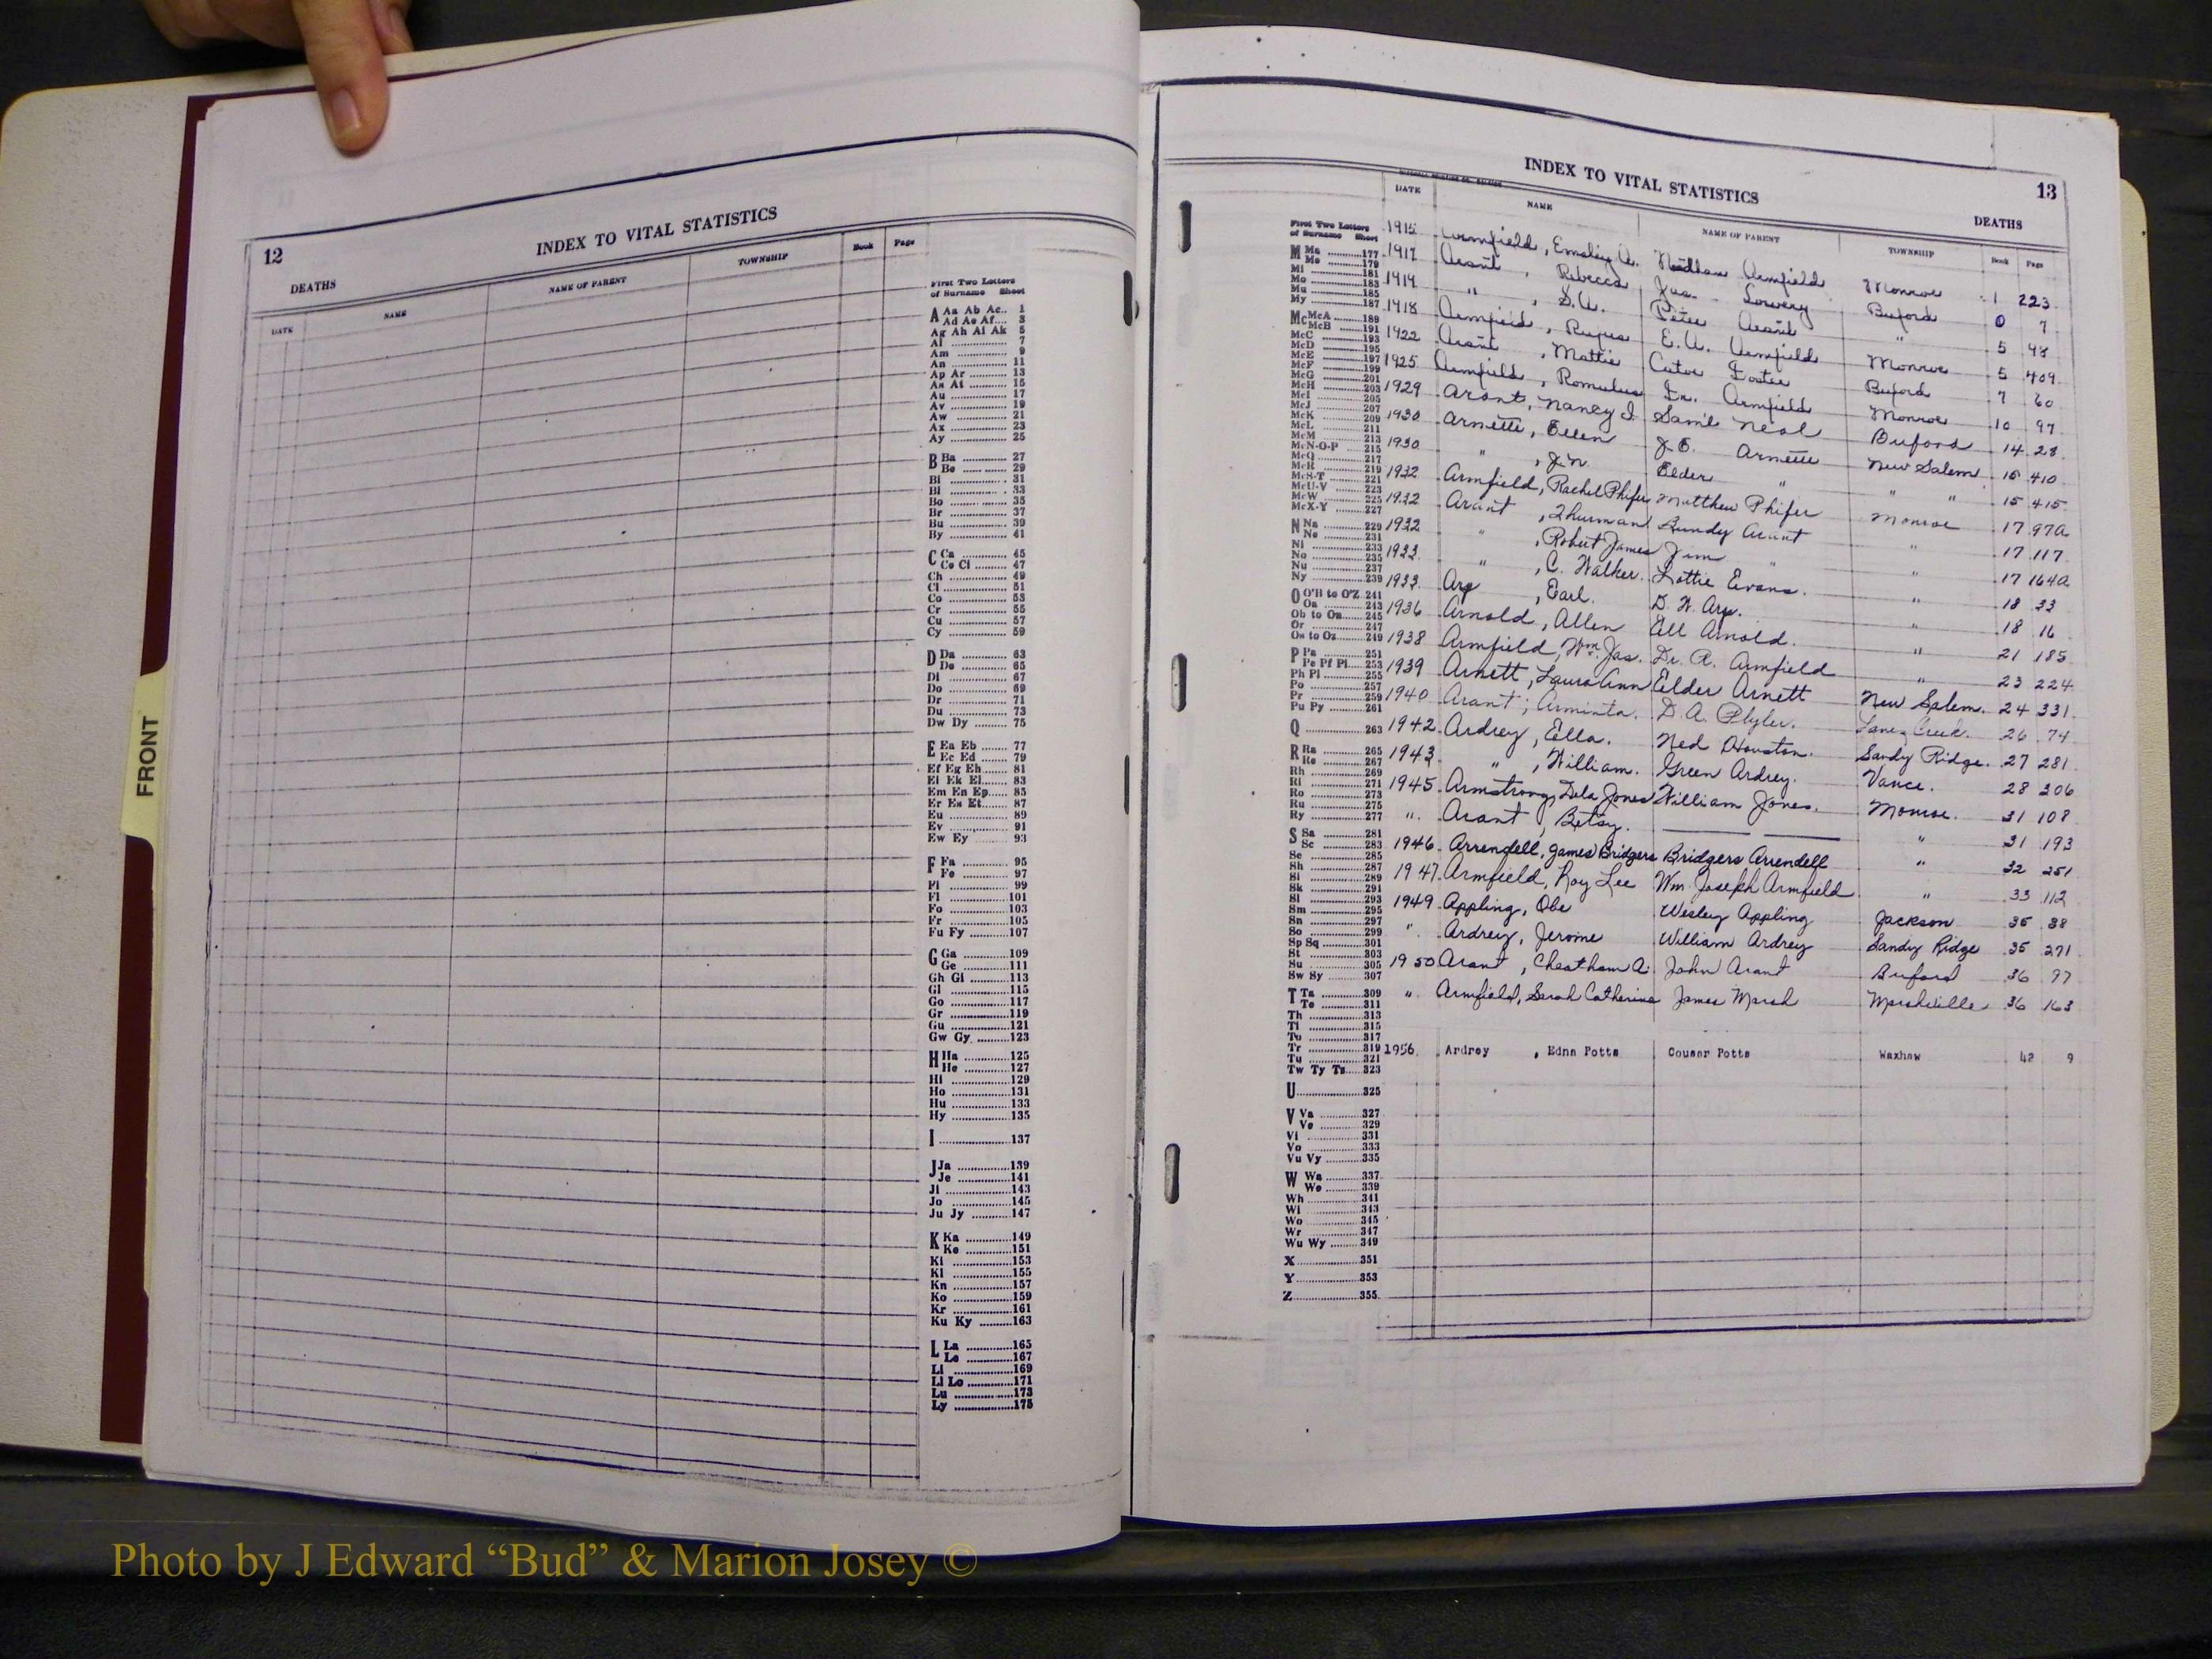 12
INDEX TO VITAL STATISTICS
DEATHS
DATE NAME NAME OF PARENT TOWNSHIP Book Page
First Two Letters
of Surname Sheet
A Aa Ab Ac.. 1
Ad Ae Af.... 3
Ag Ah Ai Ak 5
Al ............ 7
Am ............ 9
An ............ 11
Ap Ar ............ 13
As At ............ 15
Au ............ 17
Av ............ 19
Aw ............ 21
Ax ............ 23
Ay ............ 25
B Ba ............ 27
Be ............ 29
Bi ............ 31
Bl ............ 33
Bo ............ 35
Br ............ 37
Bu ............ 39
By ............ 41
C Ca ............ 45
Ce Ci ......... 47
Ch ............ 49
Cl ............ 51
Co ............ 53
Cr ............ 55
Cu ............ 57
Cy ............ 59
D Da ............ 63
De ............ 65
Di ............ 67
Do ............ 69
Dr ............ 71
Du ............ 73
Dw Dy ......... 75
E Ea Eb ....... 77
Ec Ed ....... 79
Ef Eg Eh...... 81
Ei Ek El...... 83
Em En Ep..... 85
Er Es Et...... 87
Eu ............ 89
Ev ............ 91
Ew Ey ........ 93
F Fa ............ 95
Fe ............ 97
Fi ............ 99
Fl ............101
Fo ............103
Fr ............105
Fu Fy ..........107
G Ga ............109
Ge ............111
Gh Gi ..........113
Gl ............115
Go ............117
Gr ............119
Gu ............121
Gw Gy. .........123
H Ha ............125
He ............127
Hi ............129
Ho ............131
Hu ............133
Hy ............135
I ............137
J Ja ............139
Je ............141
Ji ............143
Jo ............145
Ju Jy ..........147
K Ka ............149
Ke ............151
Ki ............153
Kl ............155
Kn ............157
Ko ............159
Kr ............161
Ku Ky .........163
L La ............165
Le ............167
Li ............169
Ll Lo ............171
Lu ............173
Ly ............175
FRONT
INDEX TO VITAL STATISTICS
13
DEATHS
DATE NAME NAME OF PARENT TOWNSHIP Book Page
First Two Letters
of Surname Sheet
M Ma .........177
Me .........179
Mi .........181
Mo .........183
Mu .........185
My .........187
Mc McA .......189
McB .......191
McC .........193
McD .........195
McE .........197
McF .........199
McG .........201
McH .........203
McI .........205
McJ .........207
McK .........209
McL .........211
McM .........213
McN-O-P ......215
McQ .........217
McR .........219
McS-T .......221
McU-V .......223
McW .........225
McX-Y .......227
N Na .........229
Ne .........231
Ni .........233
No .........235
Nu .........237
Ny .........239
O O'B to O'Z 241
Oa .........243
Ob to On......245
Or .........247
Os to Oz......249
P Pa .........251
Pe Pf Pi....253
Ph Pl .........255
Po .........257
Pr .........259
Pu Py .........261
Q .........263
R Ra .........265
Re .........267
Rh .........269
Ri .........271
Ro .........273
Ru .........275
Ry .........277
S Sa .........281
Sc .........283
Se .........285
Sh .........287
Si .........289
Sk .........291
Sl .........293
Sm .........295
Sn .........297
So .........299
Sp Sq .........301
St .........303
Su .........305
Sw Sy .........307
T Ta .........309
Te .........311
Th .........313
Ti .........315
To .........317
Tr .........319
Tu .........321
Tw Ty Tz.....323
U.........325
V Va .........327
Ve .........329
Vi .........331
Vo .........333
Vu Vy .........335
W Wa .........337
We .........339
Wh .........341
Wi .........343
Wo .........345
Wr .........347
Wu Wy .......349
X.........351
Y.........353
Z.........355
1915 Armfield, Emsley A. Needham Armfield Monroe 1 223
1917 Arant, Rebecca Jas. Lowery Buford 0 7
1919 " , S.A. Peter Arant " 5 98
1918 Armfield, Rufus E. A. Armfield Monroe 5 409
1922 Arant, Mattie Cator Foster Buford 7 60
1925 Armfield, Romulus Armfield Monroe 10 97
1929 Arant, Nancy J. Sam'l Neal Buford 14 28
1930 Arnette, Ellen J. E. Arnette New Salem 15 410
1930 " , J.N. Elder " " " 15 415
1932 Armfield, Rachel Phifer Matthew Phifer Monroe 17 97a
1932 Arant, Thurman Bundy Arant " 17 117
1932 " , Robert James Jim " " 17 164a
1933 " , C. Walker. Lottie Evans. " 18 33
1933 Arp, Earl. D. W. Arp. " 18 16
1936 Arnold, Allen Ell Arnold. " 21 185
1938 Armfield, Wm. Jas. Dr. R. Armfield " 23 224
1939 Arnett, Laura Ann Elder Arnett New Salem. 24 331
1940 Arant, Arminta. D. A. Plyler. Lanes Creek. 26 74
1942 Ardrey, Ella. Ned Houston. Sandy Ridge. 27 281
1943 " , William. Green Ardrey. Vance. 28 306
1945 Armstrong, Dela Jones William Jones. Monroe. 31 108
" Arant, Betsy. " 31 193
1946 Arrendell, James Bridgers Bridgers Arrendell " 32 251
1947 Armfield, Roy Lee Wm. Joseph Armfield " 33 112
1949 Appling, Obe Wesley Appling Jackson 35 38
" Ardrey, Jerome William Ardrey Sandy Ridge 35 271
1950 Arant, Cheatham A. John Arant Buford 36 77
" Armfield, Sarah Catherine James Marsh Marshville 36 163
1956 Ardrey , Edna Potts Couser Potts Waxhaw 42 9
Photo by J Edward “Bud” & Marion Josey ©